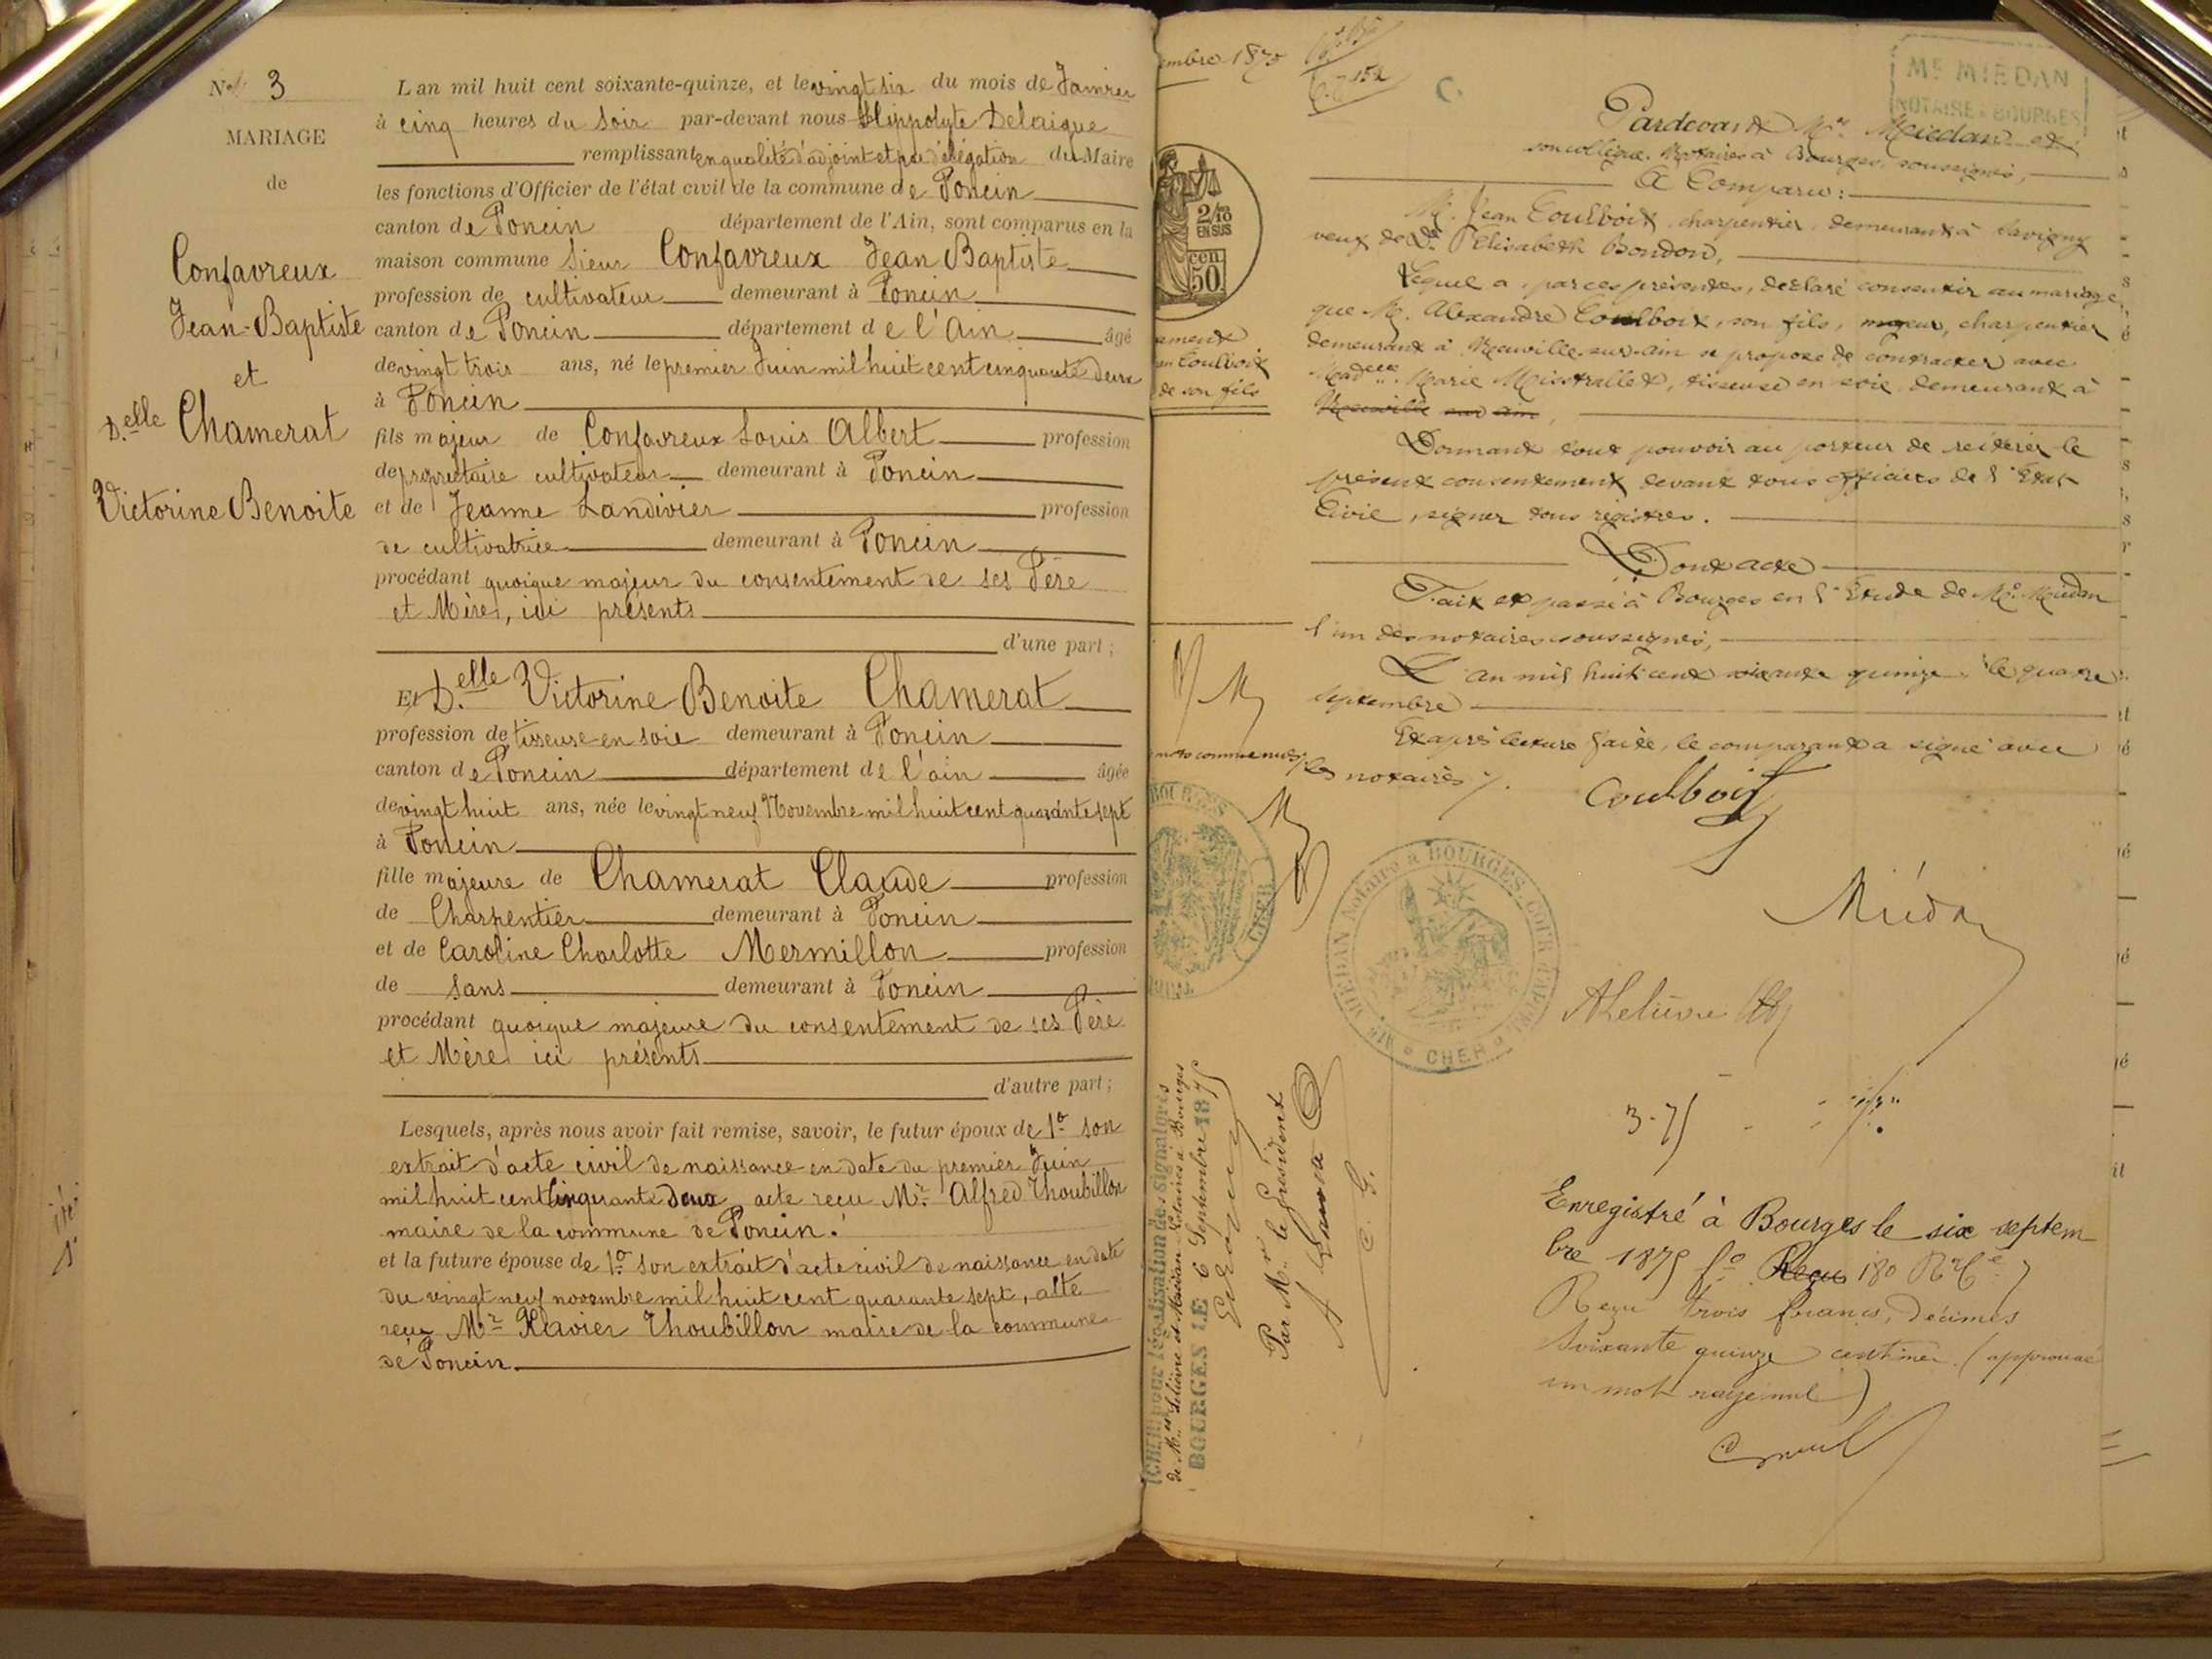 N° 3
MARIAGE
de
Confavreux
Jean-Baptiste
et
D.elle Chamerat
Victorine Benoite
L'an mil huit cent soixante-quinze, et le vingt six du mois de Janvier
à cinq heures du soir par-devant nous Hippolyte Delaigue
remplissant en qualité d'adjoint et par délégation du Maire
les fonctions d'Officier de l'état civil de la commune de Poncin
canton de Poncin département de l'Ain, sont comparus en la
maison commune Sieur Confavreux Jean Baptiste
profession de cultivateur demeurant à Poncin
canton de Poncin département de l'Ain âgé
de vingt trois ans, né le premier Juin mil huit cent cinquante deux
à Poncin
fils majeur de Confavreux Louis Albert profession
de propriétaire cultivateur demeurant à Poncin
et de Jeanne Landivier profession
de cultivatrice demeurant à Poncin
procédant quoique majeur du consentement de ses Père
et Mère, ici présents
d'une part ;
Et D.elle Victorine Benoite Chamerat
profession de tisseuse en soie demeurant à Poncin
canton de Poncin département de l'ain âgée
de vingt huit ans, née le vingt neuf Novembre mil huit cent quarante sept
à Poncin
fille majeure de Chamerat Claude profession
de Charpentier demeurant à Poncin
et de Caroline Charlotte Mermillon profession
de sans demeurant à Poncin
procédant quoique majeure du consentement de ses Père
et Mère ici présents
d'autre part ;
Lesquels, après nous avoir fait remise, savoir, le futur époux de 1° son
extrait d'acte civil de naissance en date du premier Juin
mil huit cent cinquante deux, acte reçu Mr Alfred Thoubillon
maire de la commune de Poncin.
et la future épouse de 1° son extrait d'acte civil de naissance en date
du vingt neuf novembre mil huit cent quarante sept, acte
reçu Mr Xavier Thoubillon maire de la commune
de Poncin
embre 1875
2/10
EN SUS
50 cen
ement
en Coulboix
de son fils
Me MIEDAN
NOTAIRE à BOURGES
Pardevant Me Miedan et
son collègue, Notaires à Bourges, soussignés,
A Comparu :
M. Jean Coulboix, charpentier, demeurant à Savigny
veuf de De Elisabeth Bondon,
Lequel a, par ces présentes, déclaré consentir au mariage
que M. Alexandre Coulboix, son fils, majeur, charpentier
demeurant à Neuville-sur-Ain se propose de contracter avec
Madelle Marie Mistrallet, tisseuse en soie demeurant à
Neuville sur ain,
Donnant tout pouvoir au porteur de réitérer le
présent consentement devant tous officiers de l'Etat
Civil, signer tous registres.
Dont acte
Fait et passé à Bourges en l'Etude de Me Miedan
l'un des notaires soussignés,
L'an mil huit cent soixante quinze, le quatre
septembre
Et après lecture faite, le comparant a signé avec
les notaires
Coulboix
Miédan
ALelièvre
BOURGES
CHER
Mre MIEDAN Notaire à BOURGES. COUR d'APPEL
CHER
pour légalisation des signatures
de Mes Lelièvre et Miédan Notaires à Bourges
BOURGES LE 6 Septembre 1875
Par Mr le Président
C. G.
3-75
Enregistré à Bourges le six septem
bre 1875 f° Reçu 180 R° C°
Reçu trois francs, décimes
soixante quinze centimes (approuvé
un mot rayé nul)